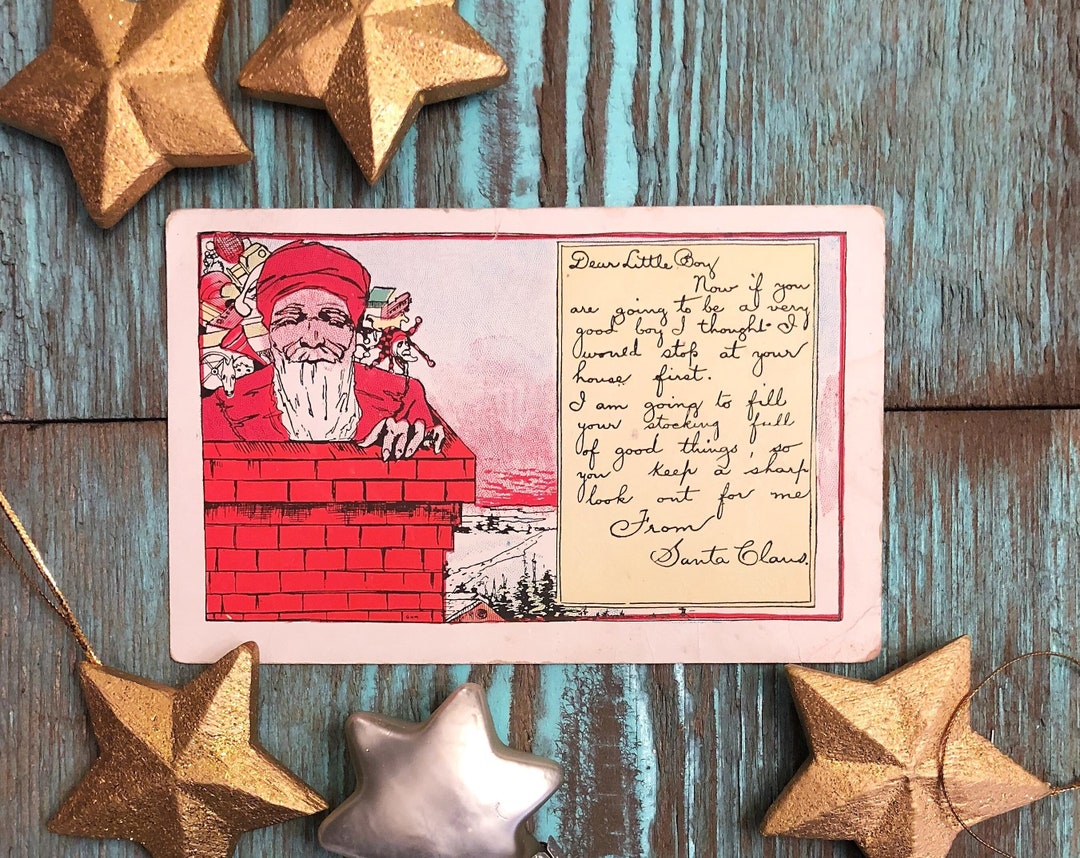 Dear Little Boy
Now if you
are going to be a very
good boy I thought I
would stop at your
house first.
I am going to fill
your stocking full
of good things so
you keep a sharp
look out for me
From
Santa Claus.